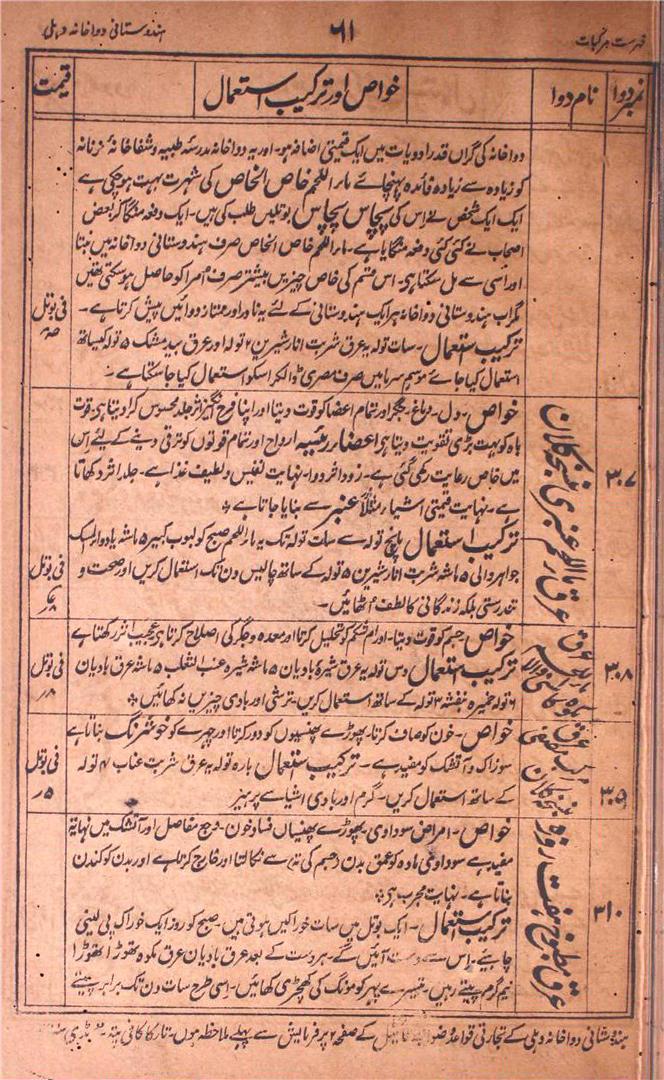 فہرست مرکبات
۶۱
ہندوستانی دواخانہ دہلی
نمبر دوا
نام دوا
خواص اور ترکیب استعمال
قیمت
دواخانہ کی گراں قدر ادویات میں ایک قیمتی اضافہ ہو۔ اور یہ دواخانہ مدرسہ طبیہ و شفاخانۂ زنانہ
کو زیادہ سے زیادہ فائدہ پہنچائے ماء اللحم خاص الخاص کی شہرت بہت ہو چکی ہے
ایک ایک شخص نے اس کی پچاس پچاس بوتلیں طلب کی ہیں۔ ایک دفعہ منگا کر بعض
اصحاب نے کئی کئی دفعہ منگایا ہے۔ ماء اللحم خاص الخاص صرف ہندوستانی دواخانہ میں بنتا
اور اسی سے مل سکتا ہی۔ اس قسم کی خاص چیزیں بیشتر صرف اُمرا کو حاصل ہو سکتی تھیں
مگر اب ہندوستانی دواخانہ ہر ایک ہندوستانی کے لئے یہ نادر اور ممتاز دوائیں پیش کرتا ہے۔
ترکیب استعمال۔ سات تولہ یہ عرق شربت انار شیریں ۲ تولہ اور عرق بید مشک ۵ تولہ کیساتھ
استعمال کیا جائے موسم سرما میں صرف مصری ڈالکر اسکو استعمال کیا جا سکتا ہے۔
فی بوتل
۳۰۷
عرق ماء اللحم عنبری بنسخہ کلان
خواص۔ دل۔ دماغ۔ جگر اور تمام اعضا کو قوت دیتا اور اپنا فرح انگیز اثر جلد محسوس کرا دیتا ہی۔ قوت
باہ کو بہت بڑی تقویت دیتا ہی اعضاء رئیسہ ارواح اور تمام قوتوں کو ترقی دینے کے لئے اس
میں خاص رعایت رکھی گئی ہے۔ زود اثر دوا۔ نہایت نفیس و لطیف غذا ہے۔ جلد اثر دکھاتا
ہے۔ نہایت قیمتی اشیاء مثلاً عنبر سے بنایا جاتا ہے
ترکیب استعمال پانچ تولہ سے سات تولہ تک یہ ماء اللحم صبح کو لبوب کبیر ۵ ماشہ یا دواء المسک
جواہر والی ۵ ماشہ شربت انار شیریں ۵ تولہ کے ساتھ چالیس دن تک استعمال کریں اور صحت و
تندرستی بلکہ زندگانی کا لطف اُٹھائیں۔
فی بوتل
۳۰۸
خواص جسم کو قوت دیتا۔ اورام شکم کو تحلیل کرتا اور معدہ و جگر کی اصلاح کرتا ہی عجیب اثر رکھتا ہے
ترکیب استعمال دس تولہ یہ عرق شیرۂ بادیان ۵ ماشہ شیرہ عنب الثعلب ۵ ماشہ عرق بادیان
۶ تولہ خمیرہ بنفشہ ۳ تولہ کے ساتھ استعمال کریں۔ ترشی اور بادی چیزیں نہ کھائیں
فی بوتل
۳۰۵
خواص۔ خون کو صاف کرتا۔ پھوڑے پھنسیوں کو دور کرتا اور چہرے کو خوش رنگ بناتا ہے
سوزاک و آتشک کو مفید ہے۔ ترکیب استعمال بارہ تولہ یہ عرق شربت عناب ۴ تولہ
کے ساتھ استعمال کریں۔ گرم اور بادی اشیا سے پرہیز
فی بوتل
۳۱۰
عرق مطبوخ ہفت روزہ
خواص۔ امراض سوداوی پھوڑے پھنسیاں فساد خون۔ وجع مفاصل اور آتشک میں نہایت
مفید ہے سوداوی مادہ کو عمق بدن (جسم کی تہ) سے نکالتا اور خارج کرتا ہے اور بدن کو کندن
بناتا ہے۔ نہایت مجرب ہی
ترکیب استعمال۔ ایک بوتل میں سات خوراکیں ہوتی ہیں۔ صبح کو روز ایک خوراک پی لینی
چاہیئے۔ اس سے دست آئیں گے۔ ہر دست کے بعد عرق بادیان عرق مکوہ تھوڑا تھوڑا
نیم گرم پیتے رہیں۔ تیسرے پہر کو مونگ کی کھچڑی کھائیں۔ اسی طرح سات دن تک برابر پیتے
ہندوستانی دواخانہ دہلی کے تجارتی قواعد و ضوابط کے صفحہ ۲ پر فرمایش سے پہلے ملاحظہ ہوں۔ تار کا کافی پتہ۔